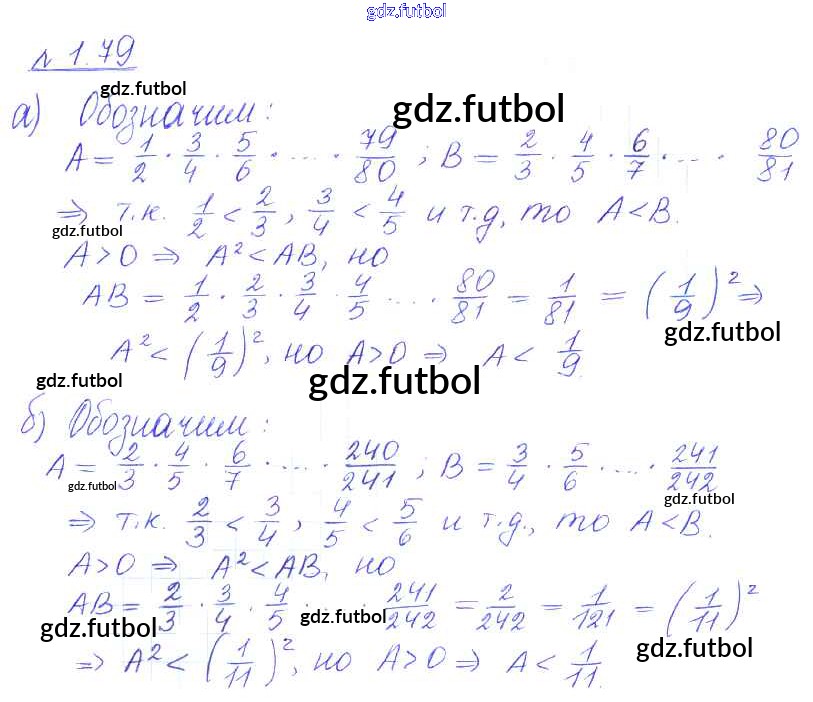 gdz.futbol
№ 1.79
gdz.futbol
а) Обозначим: gdz.futbol
A = 1/2 · 3/4 · 5/6 · ... · 79/80 ; B = 2/3 · 4/5 · 6/7 · ... · 80/81
⇒ т.к. 1/2 < 2/3, 3/4 < 4/5 и т.д, то A < B.
gdz.futbol
A > 0 ⇒ A² < AB, но
AB = 1/2 · 2/3 · 3/4 · 4/5 ... · 80/81 = 1/81 = (1/9)² ⇒
gdz.futbol
A² < (1/9)², но A > 0 ⇒ A < 1/9.
gdz.futbol gdz.futbol
б) Обозначим:
A = 2/3 · 4/5 · 6/7 · ... · 240/241 ; B = 3/4 · 5/6 · ... · 241/242
gdz.futbol gdz.futbol
⇒ т.к. 2/3 < 3/4, 4/5 < 5/6 и т.д., то A < B.
A > 0 ⇒ A² < AB, но
AB = 2/3 · 3/4 · 4/5 · ... · 241/242 = 2/242 = 1/121 = (1/11)²
gdz.futbol gdz.futbol
⇒ A² < (1/11)², но A > 0 ⇒ A < 1/11.
gdz.futbol